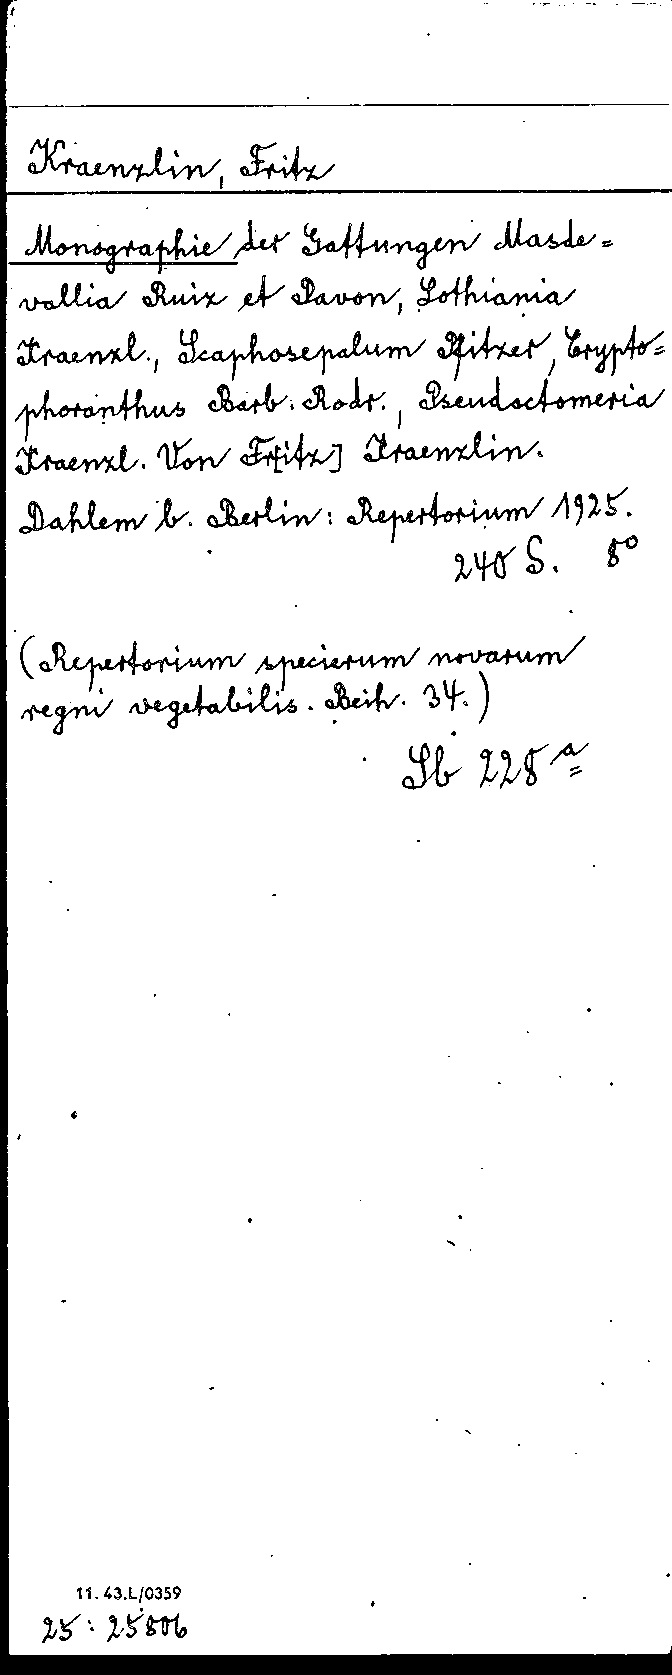 Kraenzlin, Fritz
Monographie der Gattungen Masde=
vallia Ruiz et Pavon, Lothiania
Kraenzl., Scaphosepalum Pfitzer, Crypto=
phoranthus Barb. Rodr., Pseudoctomeria
Kraenzl. Von Fr[itz] Kraenzlin.
Dahlem b. Berlin: Repertorium 1925.
240 S. 8°
(Repertorium specierum novarum
regni vegetabilis. Beih. 34.)
Sb 228 a
11.43.L/0359
25: 25806